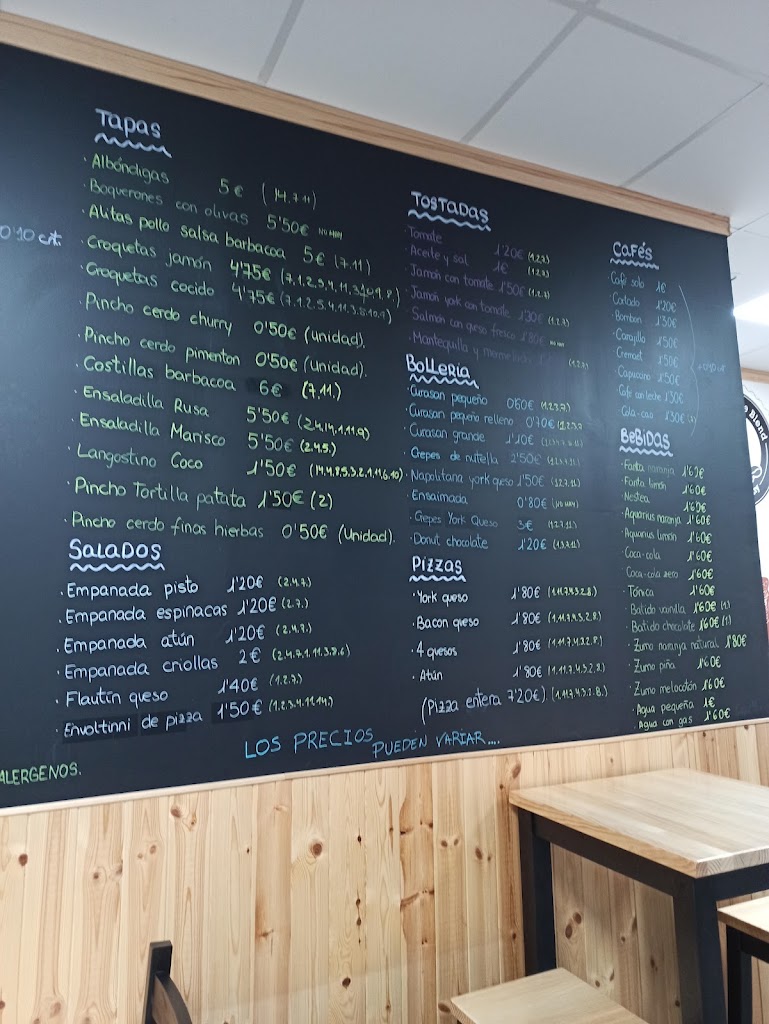 Tapas
· Albóndigas 5€ (14.7.11)
· Boquerones con olivas 5'50€
· Alitas pollo salsa barbacoa 5€ (7.11)
· Croquetas jamón 4'75€
· Croquetas cocido 4'75€
· Pincho cerdo churry 0'50€ (unidad).
· Pincho cerdo pimenton 0'50€ (unidad).
· Costillas barbacoa 6€ (7.11.)
· Ensaladilla Rusa 5'50€ (2.4.14.1.11.9)
· Ensaladilla Marisco 5'50€ (2.4.5.)
· Langostino Coco 1'50€ (14.4.8.5.3.2.1.11.6.10)
· Pincho Tortilla patata 1'50€ (2)
· Pincho cerdo finas hierbas 0'50€ (Unidad).
SALADOS
· Empanada pisto 1'20€ (2.4.7.)
· Empanada espinacas 1'20€ (2.7.)
· Empanada atún 1'20€ (2.4.7.)
· Empanada criollas 2€ (2.4.7.1.11.3.8.6)
· Flautín queso 1'40€ (1.2.7.)
· Envoltinni de pizza 1'50€ (1.2.3.4.11.14.)
0'10 crt.
ALERGENOS.
TOSTADAS
· Tomate 1'20€ (1.2.7.)
· Aceite y sal 1€ (1.2.7.)
· Jamón con tomate 1'50€ (1.2.7)
· Jamón york con tomate 1'30€ (1.2.7.)
· Salmón con queso fresco 1'80€
· Mantequilla y mermelada (1.2.7.)
BOLLERIA
· Curasan pequeño 0'60€ (1.2.3.7.)
· Curasan pequeño relleno 0'70€ (1.2.3.7
· Curasan grande 1'10€
· Crepes de nutella 2'50€
· Napolitana york queso 1'50€ (1.2.7.11.)
· Ensaimada 0'80€
· Crepes York Queso 3€ (1.2.7.11)
· Donut chocolate 1'20€ (1.3.7.11.)
PIZZAS
· York queso 1'80€ (1.11.7.4.3.2.8.)
· Bacon queso 1'80€ (1.11.7.4.3.2.8.)
· 4 quesos 1'80€ (1.11.7.4.3.2.8.)
· Atún 1'80€ (1.11.7.4.3.2.8.)
(Pizza entera 7'20€). (1.11.7.4.3.2.8.)
LOS PRECIOS PUEDEN VARIAR....
CAFÉS
· Café solo 1€
· Cortado 1'20€
· Bombon 1'30€
· Carajillo 1'50€
· Cremaet 1'50€
· Capuccino 1'50€
· Café con leche 1'30€
· Cola-cao 1'30€
BEBIDAS
· Fanta naranja 1'60€
· Fanta limón 1'60€
· Nestea 1'60€
· Aquarius naranja 1'60€
· Aquarius limón 1'60€
· Coca-cola 1'60€
· Coca-cola zero 1'60€
· Tónica 1'60€
· Batido vainilla 1'60€ (1)
· Batido chocolate 1'60€ (1)
· Zumo naranja natural 1'80€
· Zumo piña 1'60€
· Zumo melocotón 1'60€
· Agua pequeña 1€
· Agua con gas 1'60€
Blend